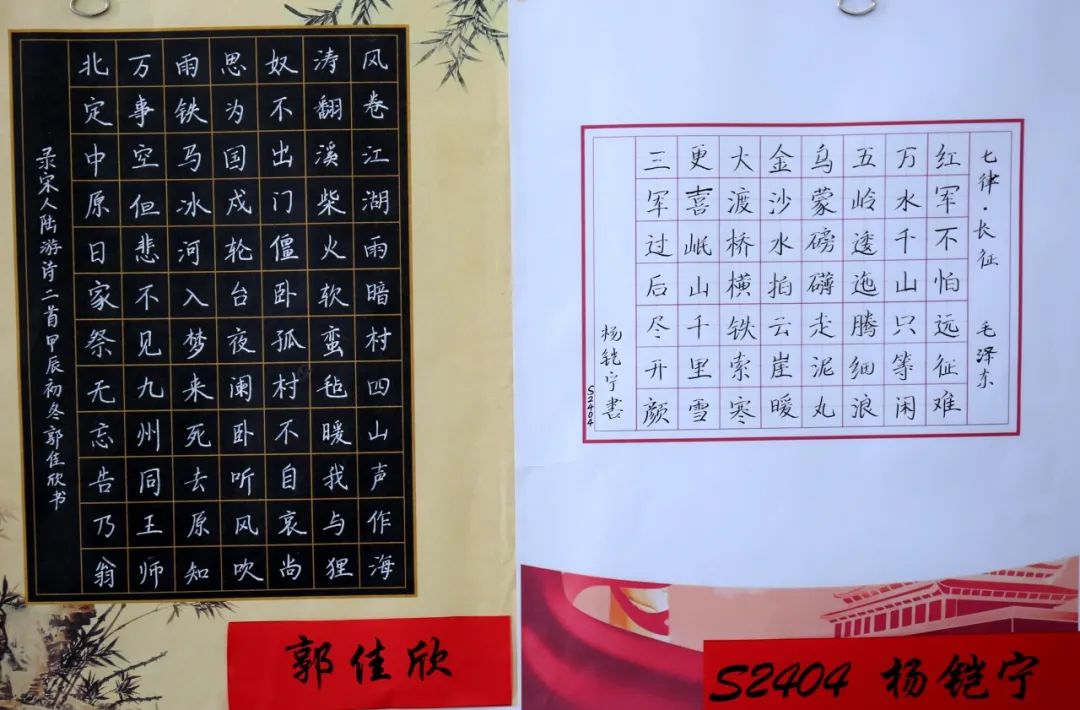 风卷江湖雨暗村四山声作海
涛翻溪柴火软蛮毡暖我与狸
奴不出门僵卧孤村不自哀尚
思为国戍轮台夜阑卧听风吹
雨铁马冰河入梦来死去原知
万事空但悲不见九州同王师
北定中原日家祭无忘告乃翁
录宋人陆游诗二首甲辰初冬郭佳欣书
郭佳欣
七律·长征 毛泽东
红军不怕远征难
万水千山只等闲
五岭逶迤腾细浪
乌蒙磅礴走泥丸
金沙水拍云崖暖
大渡桥横铁索寒
更喜岷山千里雪
三军过后尽开颜
杨铠宁書
S2404
S2404 杨铠宁